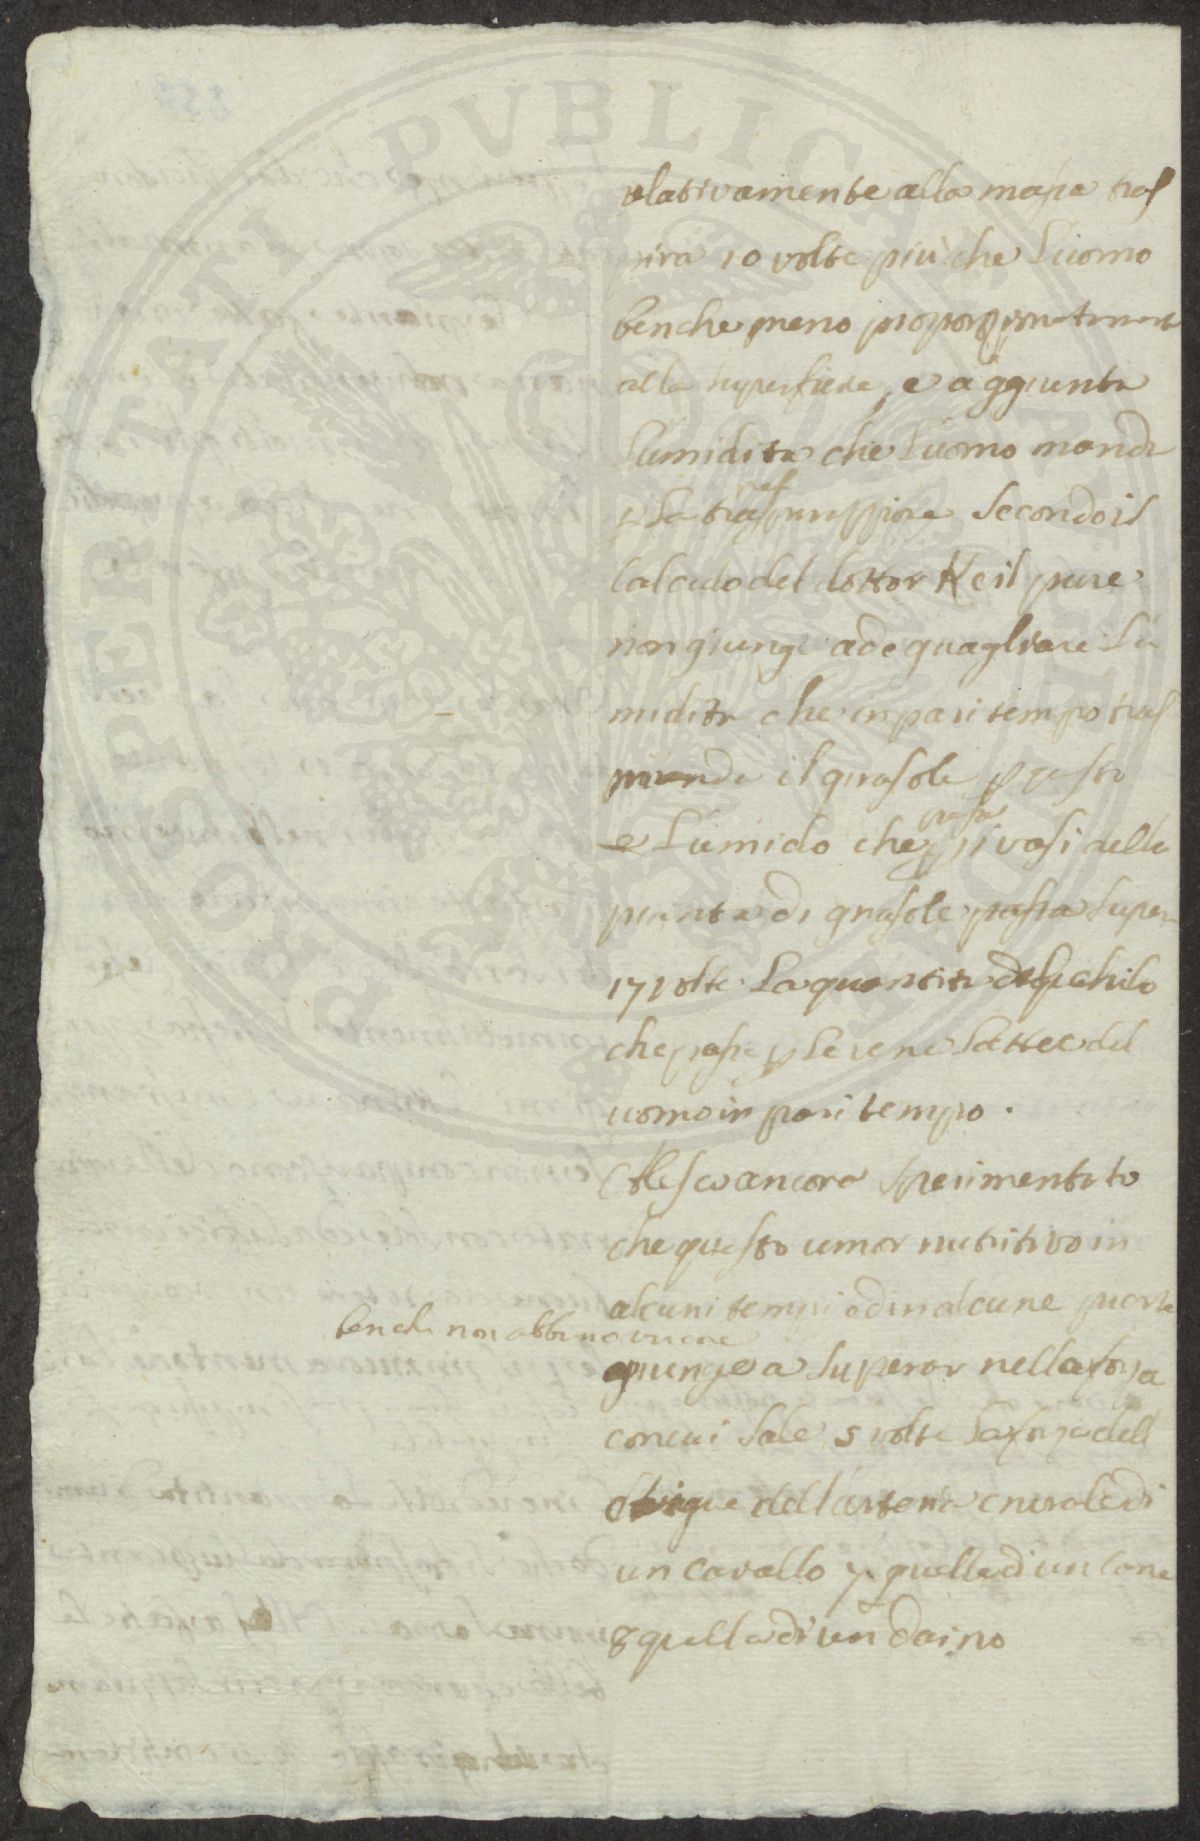 relativamente alla massa tras
pira 10 volte più che l'uomo
benche meno proporzionatamente
alla superficie, e aggiunta
l'umidita che l'uomo manda
p la traspirazione secondo il
calculo del dottor Keil pure
non giunge ad equagliare l'u
midita che in pari tempo tras
manda il girasole p questo
e l'umido che p i vasi della
passa
pianta di girasole passa super
17 volte la quantita del chilo
che passa p le vene lattee del
uomo in pari tempo.
ancora sperimentato
che questo umor nutritivo in
alcuni tempi ed in alcune piante
benche non abbino un core
giunge a superar nella forza
con cui sale 5 volte la forza dell
sangue dell'arteria crurale di
un cavallo 7 quella di un cane
8 quella di un daino
PROPERTATI PVBLICAE